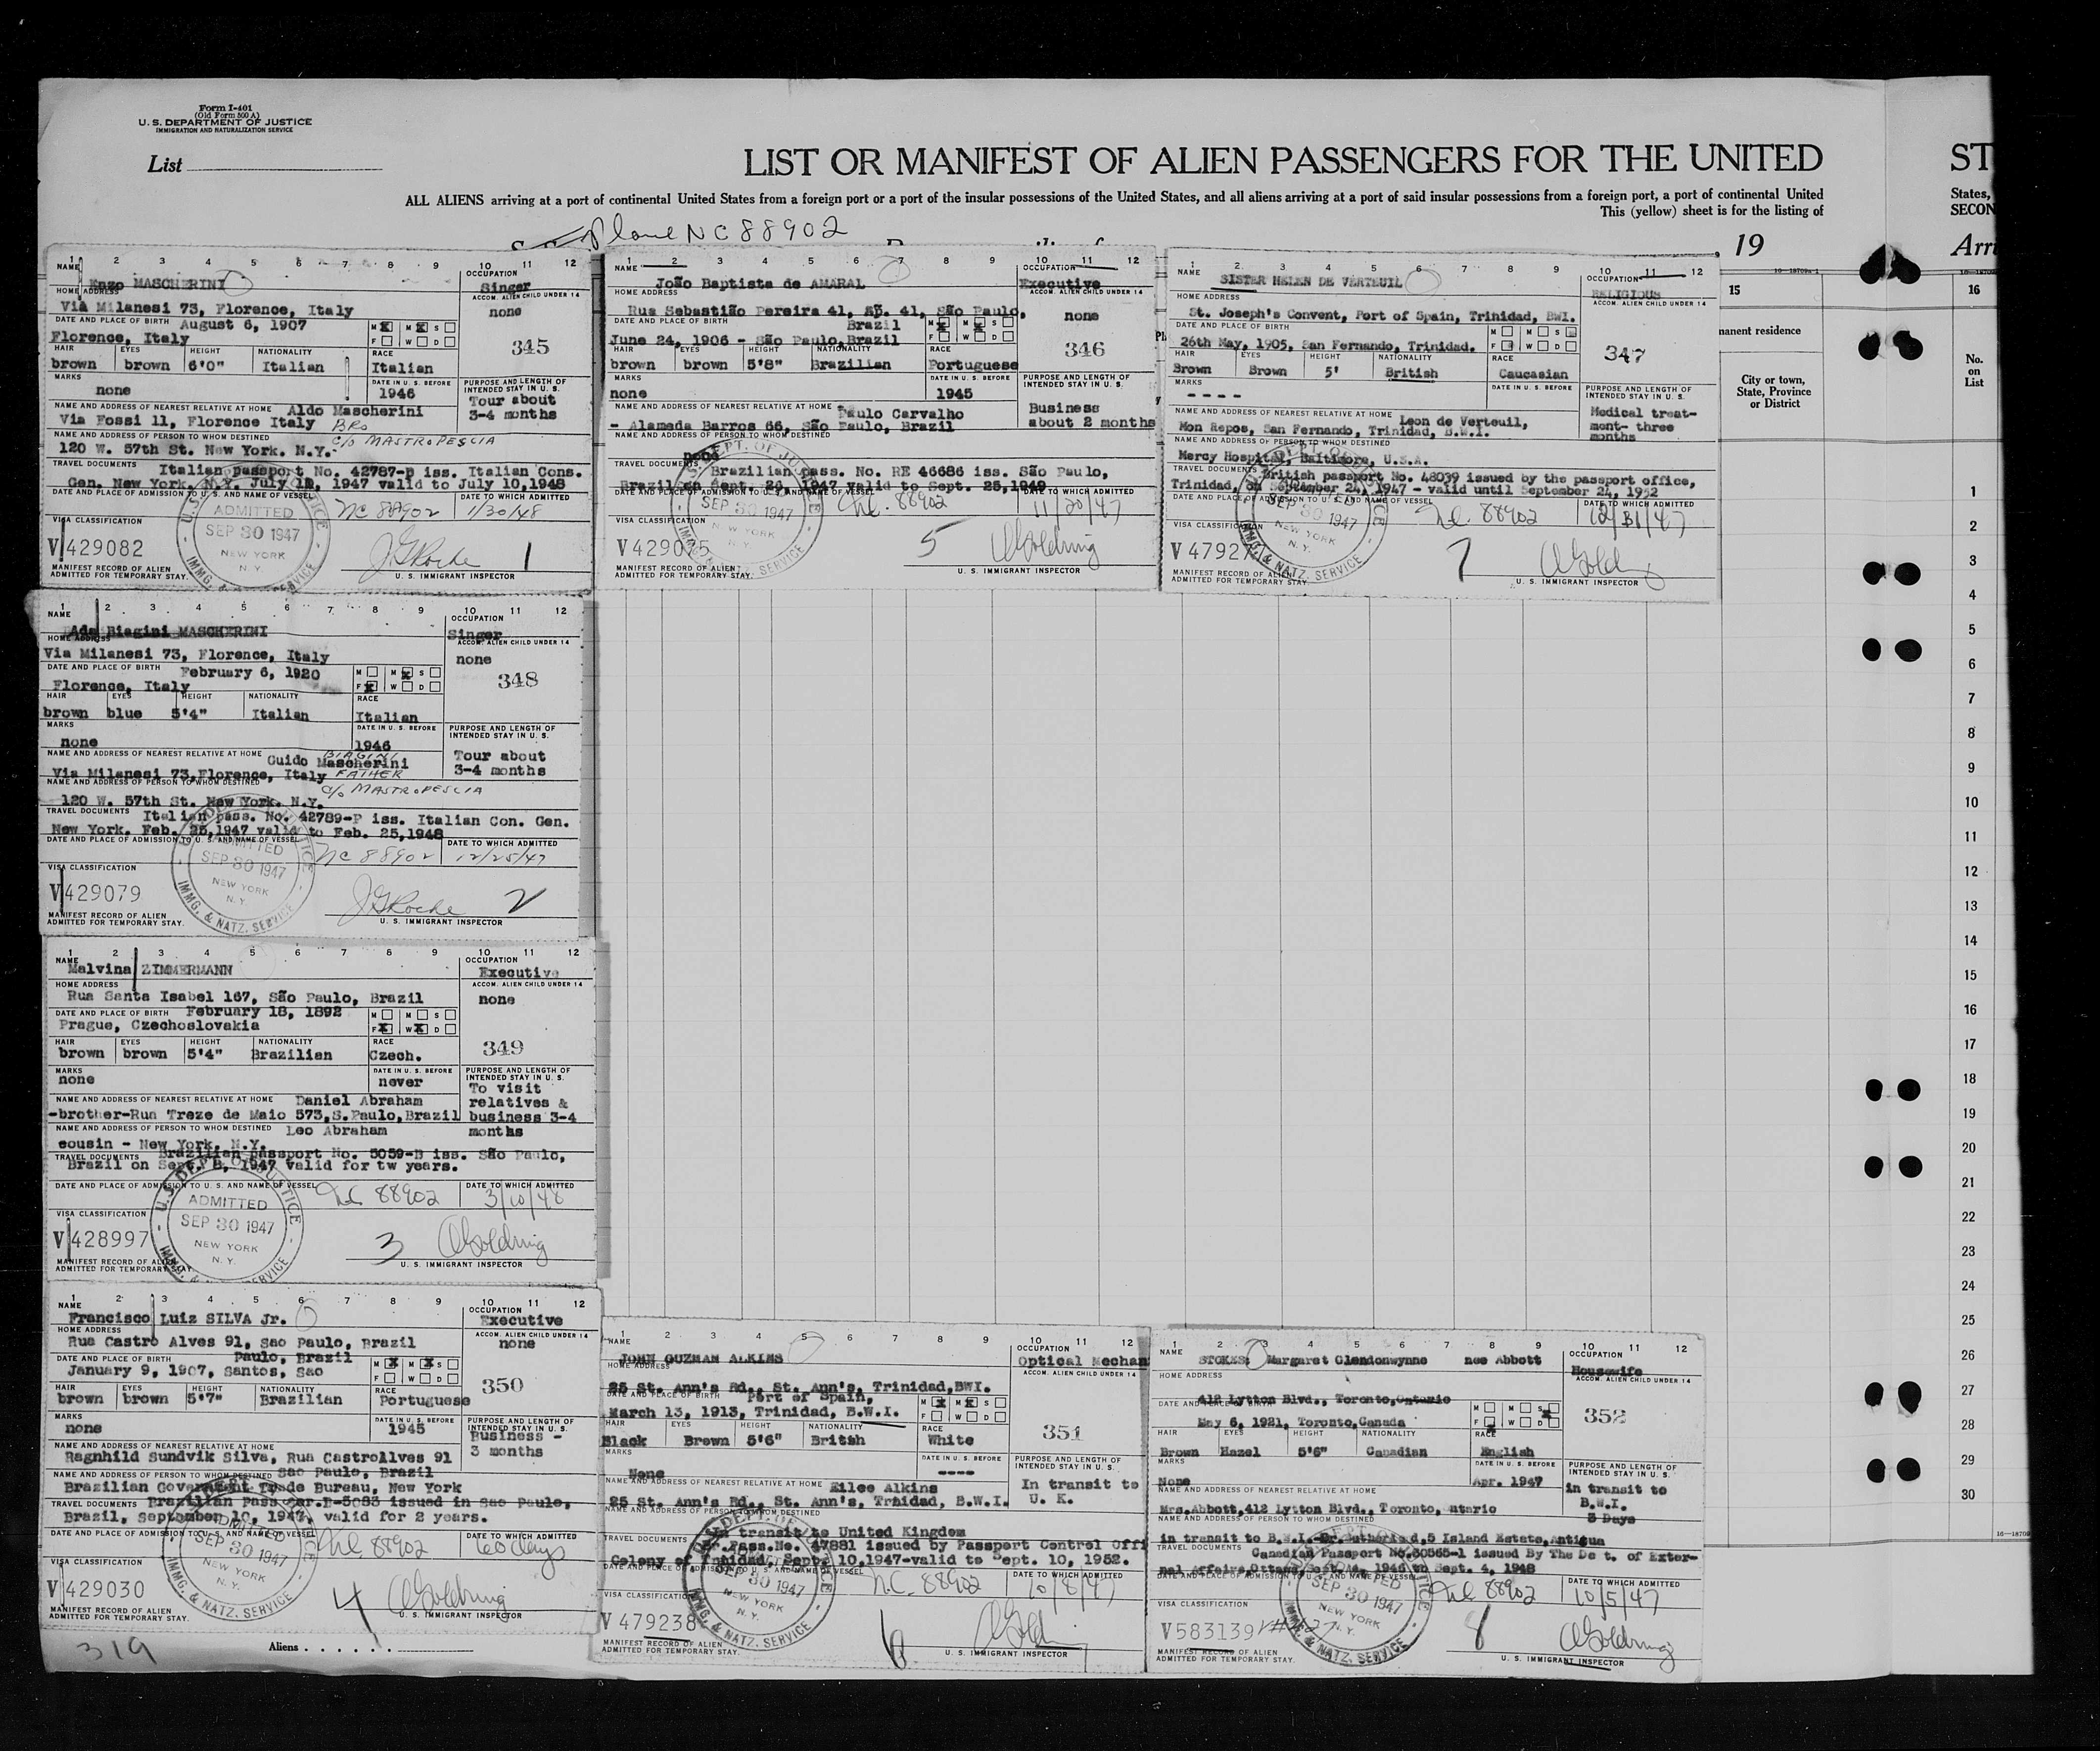 Form I-401
(Old Form 500 A)
U. S. DEPARTMENT OF JUSTICE
IMMIGRATION AND NATURALIZATION SERVICE
List
LIST OR MANIFEST OF ALIEN PASSENGERS FOR THE UNITED
ST
ALL ALIENS arriving at a port of continental United States from a foreign port or a port of the insular possessions of the United States, and all aliens arriving at a port of said insular possessions from a foreign port, a port of continental United
States,
This (yellow) sheet is for the listing of
SECON
Plane NC 88902
, 19
Arri
1 2 3 4 5 6 7 8 9 10 11 12
NAME
Enzo MASCHERINI
OCCUPATION
Singer
HOME ADDRESS
Via Milanesi 73, Florence, Italy
ACCOM. ALIEN CHILD UNDER 14
none
DATE AND PLACE OF BIRTH August 6, 1907
Florence, Italy
M X M X S
F W D
345
HAIR EYES HEIGHT NATIONALITY RACE
brown brown 6'0" Italian Italian
MARKS
none
DATE IN U. S. BEFORE
1946
PURPOSE AND LENGTH OF INTENDED STAY IN U. S.
Tour about
3-4 months
NAME AND ADDRESS OF NEAREST RELATIVE AT HOME Aldo Mascherini
Via Fossi 11, Florence Italy BRO
NAME AND ADDRESS OF PERSON TO WHOM DESTINED c/o MASTROPESCIA
120 W. 57th St. New York. N.Y.
TRAVEL DOCUMENTS Italian passport No. 42787-P iss. Italian Cons.
Gen. New York. N.Y. July 1947 valid to July 10,1948
DATE AND PLACE OF ADMISSION TO U. S. AND NAME OF VESSEL
NC 88902
DATE TO WHICH ADMITTED
1/30/48
ADMITTED
SEP 30 1947
NEW YORK
N. Y.
IMMG. & NATZ. SERVICE
VISA CLASSIFICATION
V 429082
JG Roche 1
MANIFEST RECORD OF ALIEN
ADMITTED FOR TEMPORARY STAY.
U. S. IMMIGRANT INSPECTOR
1 2 3 4 5 6 7 8 9 10 11 12
NAME
João Baptista de AMARAL
OCCUPATION
Executive
HOME ADDRESS
Rua Sebastião Pereira 41, Ap. 41, São Paulo,
Brazil
ACCOM. ALIEN CHILD UNDER 14
none
DATE AND PLACE OF BIRTH
June 24, 1906 - São Paulo,Brazil
M X M X S
F W D
346
HAIR EYES HEIGHT NATIONALITY RACE
brown brown 5'8" Brazilian Portuguese
MARKS
none
DATE IN U. S. BEFORE
1945
PURPOSE AND LENGTH OF INTENDED STAY IN U. S.
Business
about 2 months
NAME AND ADDRESS OF NEAREST RELATIVE AT HOME Paulo Carvalho
- Alameda Barros 66, São Paulo, Brazil
NAME AND ADDRESS OF PERSON TO WHOM DESTINED
none
TRAVEL DOCUMENTS Brazilian pass. No. RE 46686 iss. São Paulo,
Brazil on Sept. 1947 valid to Sept. 25,1949
DATE AND PLACE OF ADMISSION TO U. S. AND NAME OF VESSEL
NC. 88902
DATE TO WHICH ADMITTED
11/30/47
SEP 30 1947
NEW YORK
N. Y.
VISA CLASSIFICATION
V 429075
5 Goldring
MANIFEST RECORD OF ALIEN
ADMITTED FOR TEMPORARY STAY.
U. S. IMMIGRANT INSPECTOR
1 2 3 4 5 6 7 8 9 10 11 12
NAME
SISTER HELEN DE VERTEUIL
OCCUPATION
RELIGIOUS
HOME ADDRESS
St. Joseph's Convent, Port of Spain, Trinidad, BWI.
ACCOM. ALIEN CHILD UNDER 14
DATE AND PLACE OF BIRTH
26th May, 1905, San Fernando, Trinidad.
M M S
F W D
347
HAIR EYES HEIGHT NATIONALITY RACE
Brown Brown 5' British Caucasian
MARKS
- - - -
DATE IN U. S. BEFORE
PURPOSE AND LENGTH OF INTENDED STAY IN U. S.
Medical treat-
ment- three
months
NAME AND ADDRESS OF NEAREST RELATIVE AT HOME Leon de Verteuil,
Mon Repos, San Fernando, Trinidad, B.W.I.
NAME AND ADDRESS OF PERSON TO WHOM DESTINED
Mercy Hospital, Baltimore, U.S.A.
TRAVEL DOCUMENTS British passport No. 48039 issued by the passport office,
Trinidad, on September 24, 1947 - valid until September 24, 1952
DATE AND PLACE OF ADMISSION TO U. S. AND NAME OF VESSEL
NC. 88902
DATE TO WHICH ADMITTED
12/31/47
SEP 30 1947
NEW YORK
N. Y.
IMMG. & NATZ. SERVICE
VISA CLASSIFICATION
V 4792
7 Goldring
MANIFEST RECORD OF ALIEN
ADMITTED FOR TEMPORARY STAY.
U. S. IMMIGRANT INSPECTOR
15
16
manent residence
City or town,
State, Province
or District
No.
on
List
1
2
3
4
5
6
7
8
9
10
11
12
13
14
15
16
17
18
19
20
21
22
23
24
25
26
27
28
29
30
1 2 3 4 5 6 7 8 9 10 11 12
NAME
Ada Biagini MASCHERINI
OCCUPATION
Singer
HOME ADDRESS
Via Milanesi 73, Florence, Italy
ACCOM. ALIEN CHILD UNDER 14
none
DATE AND PLACE OF BIRTH February 6, 1920
Florence, Italy
M M X S
F X W D
348
HAIR EYES HEIGHT NATIONALITY RACE
brown blue 5'4" Italian Italian
MARKS
none
DATE IN U. S. BEFORE
1946
PURPOSE AND LENGTH OF INTENDED STAY IN U. S.
Tour about
3-4 months
NAME AND ADDRESS OF NEAREST RELATIVE AT HOME BIAGINI
Guido Mascherini
Via Milanesi 73,Florence, Italy FATHER
NAME AND ADDRESS OF PERSON TO WHOM DESTINED c/o MASTROPESCIA
120 W. 57th St. New York. N.Y.
TRAVEL DOCUMENTS Italian pass. No. 42789-P iss. Italian Con. Gen.
New York. Feb. 25,1947 valid to Feb. 25,1948
DATE AND PLACE OF ADMISSION TO U. S. AND NAME OF VESSEL
NC 88902
DATE TO WHICH ADMITTED
12/25/47
ADMITTED
SEP 30 1947
NEW YORK
N. Y.
IMMG. & NATZ. SERVICE
VISA CLASSIFICATION
V 429079
JG Roche 2
MANIFEST RECORD OF ALIEN
ADMITTED FOR TEMPORARY STAY.
U. S. IMMIGRANT INSPECTOR
1 2 3 4 5 6 7 8 9 10 11 12
NAME
Malvina ZIMMERMANN
OCCUPATION
Executive
HOME ADDRESS
Rua Santa Isabel 167, São Paulo, Brazil
ACCOM. ALIEN CHILD UNDER 14
none
DATE AND PLACE OF BIRTH February 18, 1892
Prague, Czechoslovakia
M M S
F X W X D
349
HAIR EYES HEIGHT NATIONALITY RACE
brown brown 5'4" Brazilian Czech.
MARKS
none
DATE IN U. S. BEFORE
never
PURPOSE AND LENGTH OF INTENDED STAY IN U. S.
To visit
relatives &
business 3-4
months
NAME AND ADDRESS OF NEAREST RELATIVE AT HOME Daniel Abraham
-brother-Rua Treze de Maio 573,S.Paulo,Brazil
NAME AND ADDRESS OF PERSON TO WHOM DESTINED Leo Abraham
cousin - New York. N.Y.
TRAVEL DOCUMENTS Brazilian passport No. 5059-B iss. São Paulo,
Brazil on Sept. 1947 valid for tw years.
DATE AND PLACE OF ADMISSION TO U. S. AND NAME OF VESSEL
NC 88902
DATE TO WHICH ADMITTED
3/10/48
U.S. DEPT. OF JUSTICE
ADMITTED
SEP 30 1947
NEW YORK
N. Y.
VISA CLASSIFICATION
V 428997
3 Goldring
MANIFEST RECORD OF ALIEN
ADMITTED FOR TEMPORARY STAY.
U. S. IMMIGRANT INSPECTOR
1 2 3 4 5 6 7 8 9 10 11 12
NAME
Francisco Luiz SILVA Jr.
OCCUPATION
Executive
HOME ADDRESS
Rua Castro Alves 91, Sao Paulo, Brazil
ACCOM. ALIEN CHILD UNDER 14
none
DATE AND PLACE OF BIRTH Paulo, Brazil
January 9, 1907, Santos, Sao
M X M X S
F W D
350
HAIR EYES HEIGHT NATIONALITY RACE
brown brown 5'7" Brazilian Portuguese
MARKS
none
DATE IN U. S. BEFORE
1945
PURPOSE AND LENGTH OF INTENDED STAY IN U. S.
Business -
3 months
NAME AND ADDRESS OF NEAREST RELATIVE AT HOME
Ragnhild Sundvik Silva, Rua Castrollves 91
NAME AND ADDRESS OF PERSON TO WHOM DESTINED Sao Paulo, Brazil
Brazilian Government Trade Bureau, New York
TRAVEL DOCUMENTS Brazilian Pass issued in Sao Paulo,
Brazil, September 10, 1947, valid for 2 years.
DATE AND PLACE OF ADMISSION TO U. S. AND NAME OF VESSEL
NC 88902
DATE TO WHICH ADMITTED
60 days
SEP 30 1947
NEW YORK
N. Y.
IMMG. & NATZ. SERVICE
VISA CLASSIFICATION
V 429030
4 Goldring
MANIFEST RECORD OF ALIEN
ADMITTED FOR TEMPORARY STAY.
U. S. IMMIGRANT INSPECTOR
1 2 3 4 5 6 7 8 9 10 11 12
NAME
JOHN GUZMAN ALKINS
OCCUPATION
Optical Mechan
HOME ADDRESS
25 St. Ann's Rd., St. Ann's, Trinidad,BWI.
ACCOM. ALIEN CHILD UNDER 14
DATE AND PLACE OF BIRTH Port of Spain,
March 13, 1913, Trinidad, B.W.I.
M X M X S
F W D
351
HAIR EYES HEIGHT NATIONALITY RACE
Black Brown 5'6" British White
MARKS
None
DATE IN U. S. BEFORE
----
PURPOSE AND LENGTH OF INTENDED STAY IN U. S.
In transit to
U. K.
NAME AND ADDRESS OF NEAREST RELATIVE AT HOME Eilee Alkins
25 St. Ann's Rd., St. Ann's, Trnidad, B.W.I.
NAME AND ADDRESS OF PERSON TO WHOM DESTINED
In transit to United Kingdom
TRAVEL DOCUMENTS Br.Pass.No. 47881 issued by Passport Control Offi
Colony of Trinidad, Sept. 10,1947-valid to Sept. 10, 1952.
DATE AND PLACE OF ADMISSION TO U. S. AND NAME OF VESSEL
N.C. 88902
DATE TO WHICH ADMITTED
10/8/47
30 1947
NEW YORK
N. Y.
IMMG. & NATZ. SERVICE
VISA CLASSIFICATION
V 479238
6 Goldring
MANIFEST RECORD OF ALIEN
ADMITTED FOR TEMPORARY STAY.
U. S. IMMIGRANT INSPECTOR
1 2 3 4 5 6 7 8 9 10 11 12
NAME
STOKES, Margaret Clendonwynne nee Abbott
OCCUPATION
Housewife
HOME ADDRESS
412 Lytton Blvd., Toronto,Ontario
ACCOM. ALIEN CHILD UNDER 14
DATE AND PLACE OF BIRTH
May 6, 1921, Toronto,Canada
M M S
F X W D X
352
HAIR EYES HEIGHT NATIONALITY RACE
Brown Hazel 5'6" Canadian English
MARKS
None
DATE IN U. S. BEFORE
Apr. 1947
PURPOSE AND LENGTH OF INTENDED STAY IN U. S.
in transit to
B.W.I.
3 Days
NAME AND ADDRESS OF NEAREST RELATIVE AT HOME
Mrs.Abbott,412 Lytton Blvd., Toronto, untario
NAME AND ADDRESS OF PERSON TO WHOM DESTINED
in transit to B.W.I. 5 Island Estate,Antigua
TRAVEL DOCUMENTS Canadian Passport No.30565-1 issued By The De t. of Exter-
nal Affairs,Ottawa, 1946 to Sept. 4, 1948
DATE AND PLACE OF ADMISSION TO U. S. AND NAME OF VESSEL
NC 88902
DATE TO WHICH ADMITTED
10/5/47
SEP 30 1947
NEW YORK
N. Y.
IMMG. & NATZ. SERVICE
VISA CLASSIFICATION
V 583139
8 Goldring
MANIFEST RECORD OF ALIEN
ADMITTED FOR TEMPORARY STAY.
U. S. IMMIGRANT INSPECTOR
319
Aliens . . . . . .